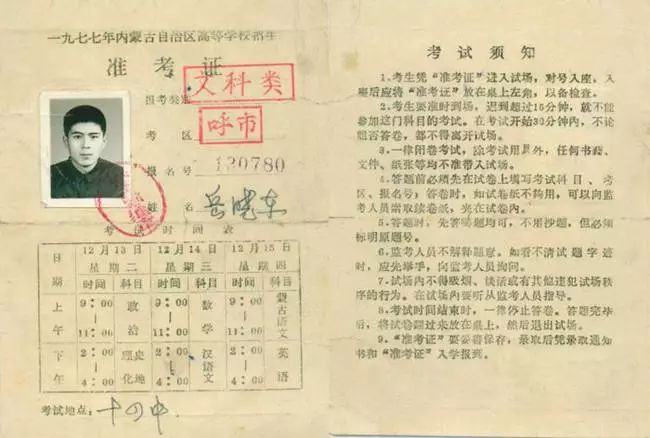 一九七七年内蒙古自治区高等学校招生
准考证
报考类别 文科类
考区 呼市
报名号 130780
姓名 岳晓东
考试时间表
日期 12月13日 星期二 12月14日 星期三 12月15日 星期四
时间 科目 时间 科目 时间 科目
上午 9:00—11:00 政治 9:00—11:00 数学 9:00—11:00 蒙古语文
下午 2:00—4:00 理化 史地 2:00—4:00 汉语文 2:00—4:00 英语
考试地点: 十四中
考试须知
1.考生凭“准考证”进入试场,对号入座,入
座后应将“准考证”放在桌上左角,以备检查。
2.考生要准时到场,迟到超过15分钟,就不能
参加这门科目的考试。在考试开始30分钟内,不论
题否答卷,都不得离开试场。
3.一律闭卷考试,除考试用具外,任何书籍、
文件、纸张等均不准带入试场。
4.答题前必须先在试卷上填写考试科目、考
区、报名号;答卷时,如试卷纸不够用,可以向监
考人员索取续卷纸,夹在试卷内。
5.答题时,先答哪题均可,不用抄题,但必须
标明原题号。
6.监考人员不解释题意。如看不清试题字迹
时,应先举手,向监考人员询问。
7.试场内不得吸烟、谈话或有其他违犯试场秩
序的行为。在试场内要听从监考人员指导。
8.考试时间结束时,一律停止答卷。答题完毕
后,将试卷翻过来放在桌上,然后退出试场。
9.“准考证”要妥善保存,录取后凭录取通知
书和“准考证”入学报到。